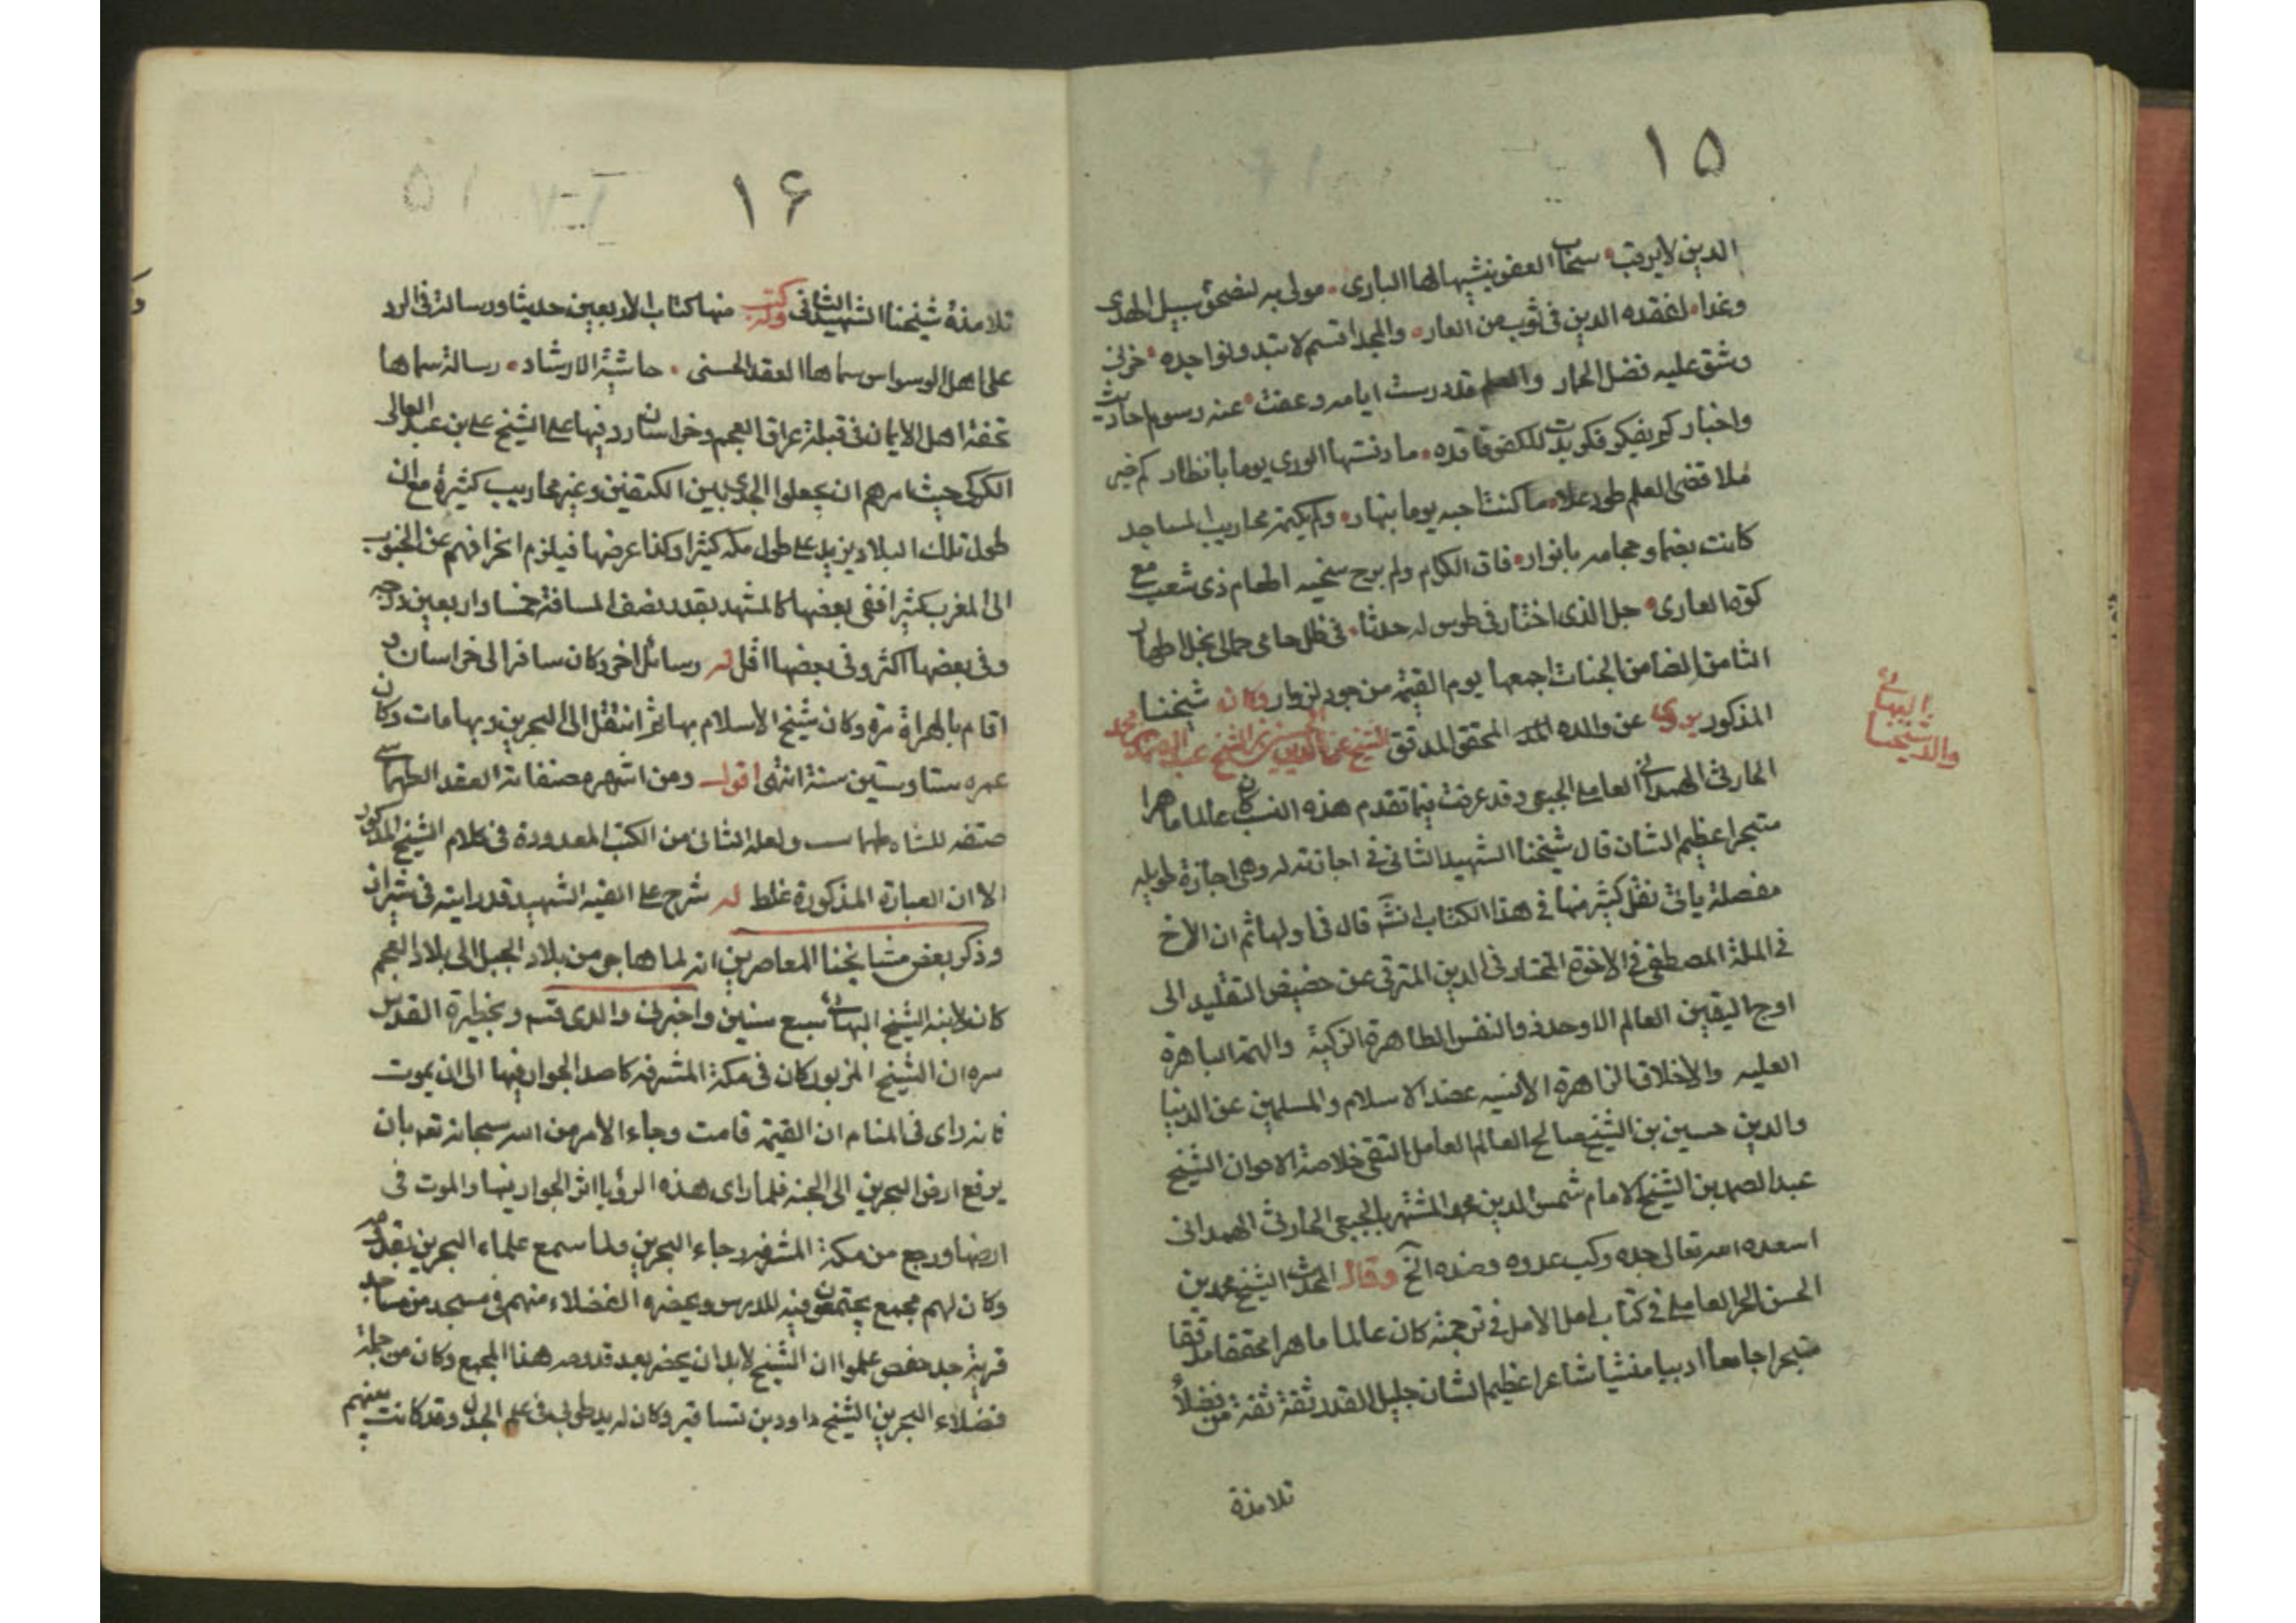 ١٥
الدين لا يرقب سحاب العفو ينشيها لها الباري مولى به لنضحوا سبيل الهدى
وغدا لفقده الدين في ثوب من العار والمجد اقسم لا تبدو نواجذه حزنا
وشق عليه فضل اطمار والعلم قد درست ايامه وعفت عنه رسوم احاديث
واخبار كم بكر فكر للكفو فاقده ما دنستها الورى يوما بانظار كم خر
لما قضى للعلم طود علا ما كنت احسبه يوما بنهار وكم بكته محاريب المساجد
كانت تضئ دجا منه بانوار فاق الكرام ولم يبرح سجيته اطعام ذي شعب مع
كسوة العاري جل الذي اختار في طوس له جدثا في ظل حامي حماها نجل اطهار
الثامن الضامن الجنات اجمعها يوم القيمة من جود لزوار وكان شيخنا
المذكور يروي عن والده المحقق المدقق الشيخ عز الدين الحسين بن الشيخ عبد الصمد بن محمد
الحارثي الهمداني العاملي الجبعي وقد عرفت فيما تقدم هذه النسب كان عالما ماهرا
متبحرا عظيم الشان قال شيخنا الشهيد الثاني في اجازته له وهي اجازة طويله
مفصلة ياتي نقل كثير منها في هذا الكتاب انشَ قال في اولها ثم ان الاخ
في الملة المصطفى في الاخوة المختار في الدين المترقي عن حضيض التقليد الى
اوج اليقين العالم الاوحد ذو النفس الطاهرة الزكية والهمة الباهرة
العليه والاخلاق الزاهرة الانسيه عضد الاسلام والمسلمين عز الدنيا
والدين حسين بن الشيخ صالح العالم العامل المتقي خلاصة الاخوان الشيخ
عبد الصمد بن الشيخ الامام شمس الدين محمد المشتهر بالجبعي الحارثي الهمداني
اسعده الله تعالى جده وكبت عدوه وضده الخ وقال المحدث الشيخ محمد بن
الحسن الحر العاملي في كتاب امل الامل في ترجمته كان عالما ماهرا محققا مدققا
متبحرا جامعا اديبا منشيا شاعرا عظيم الشان جليل القدر ثقة ثقة من فضلاء
تلامذة
البهائي
والد شيخنا
١۶
تلامذة شيخنا الشهيد الثاني وله كتب منها كتاب الاربعين حديثا ورسالة في الرد
على اهل الوسواس سماها العقد الحسنى حاشية الارشاد رسالة سماها
تحفة اهل الايمان في قبلة عراق العجم وخراسان رد فيها على الشيخ علي بن عبد العالي
الكركي حيث امرهم ان يجعلوا الجدي بين الكتفين وغير محاريب كثيرة مع ان
طول تلك البلاد يزيد على طول مكة كثيرا وكذا عرضها فيلزم انحرافهم عن الجنوب
الى المغرب كثيرا ففي بعضها كالمشهد بقدر نصف المسافة خمسا واربعين درجه
وفي بعضها اكثر وفي بعضها اقل له رسائل اخر وكان سافر الى خراسان و
اقام بالهراة مرة وكان شيخ الاسلام بها ثم انتقل الى البحرين وبها مات وكان
عمره ستا وستين سنة انتهى اقول ومن اشهر مصنفاته العقد الطهماسي
صنفه للشاه طهماسب ولعله الثاني من الكتب المعدودة في كلام الشيخ المذكور
الا ان العبارة المذكورة غلط له شرح على الفيه الشهيد قد رايته في شيراز
وذكر بعض مشايخنا المعاصرين انه لما هاجر من بلاد الجبل الى بلاد العجم
كان لابنه الشيخ البهائي سبع سنين واخبرني والدي قسم وبحظيرة القدس
سره ان الشيخ المزبور كان في مكة المشرفه قاصد الجوار فيها الى ان يموت
فانه راى في المنام ان القيمة قامت وجاء الامر من الله سبحانه تعم بان
يرفع ارض البحرين الى الجنه فلما راى هذه الرؤيا اثر الجوار فيها والموت في
ارضها ورجع من مكة المشرفه وجاء البحرين ولما سمع علماء البحرين بقدومه
وكان لهم مجمع يجتمعون فيه للدرس ويحضره الفضلاء منهم في مسجد من مساجد
قرية جد حفص علموا ان الشيخ لابد ان يحضر بعد قدومه هذا المجمع وكان من جملة
فضلاء البحرين الشيخ داود بن شافيز وكان له يد طولى في علم الجدل وقد كانت بينهم